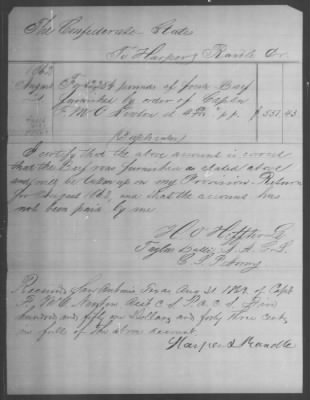 The Confederate States
To Harper & Randle Dr.
1863
August
pounds of fresh Beef
furnished by order of Captn
F. W. C. Newton at 4 2/3 cts pr. pd. $ 551.43
I certify that the above account is correct
that the Beef was furnished as stated above
and will be taken up on my Provision Return
for August 1863, and that the account has
not been paid by me
San Antonio Texas Aug 31 1863. of Capt
F. W. C. Newton Asst C. S. P. A. C. S. Five
hundred and fifty one Dollars and forty three cents
in full of the above account.
Harper & Randle